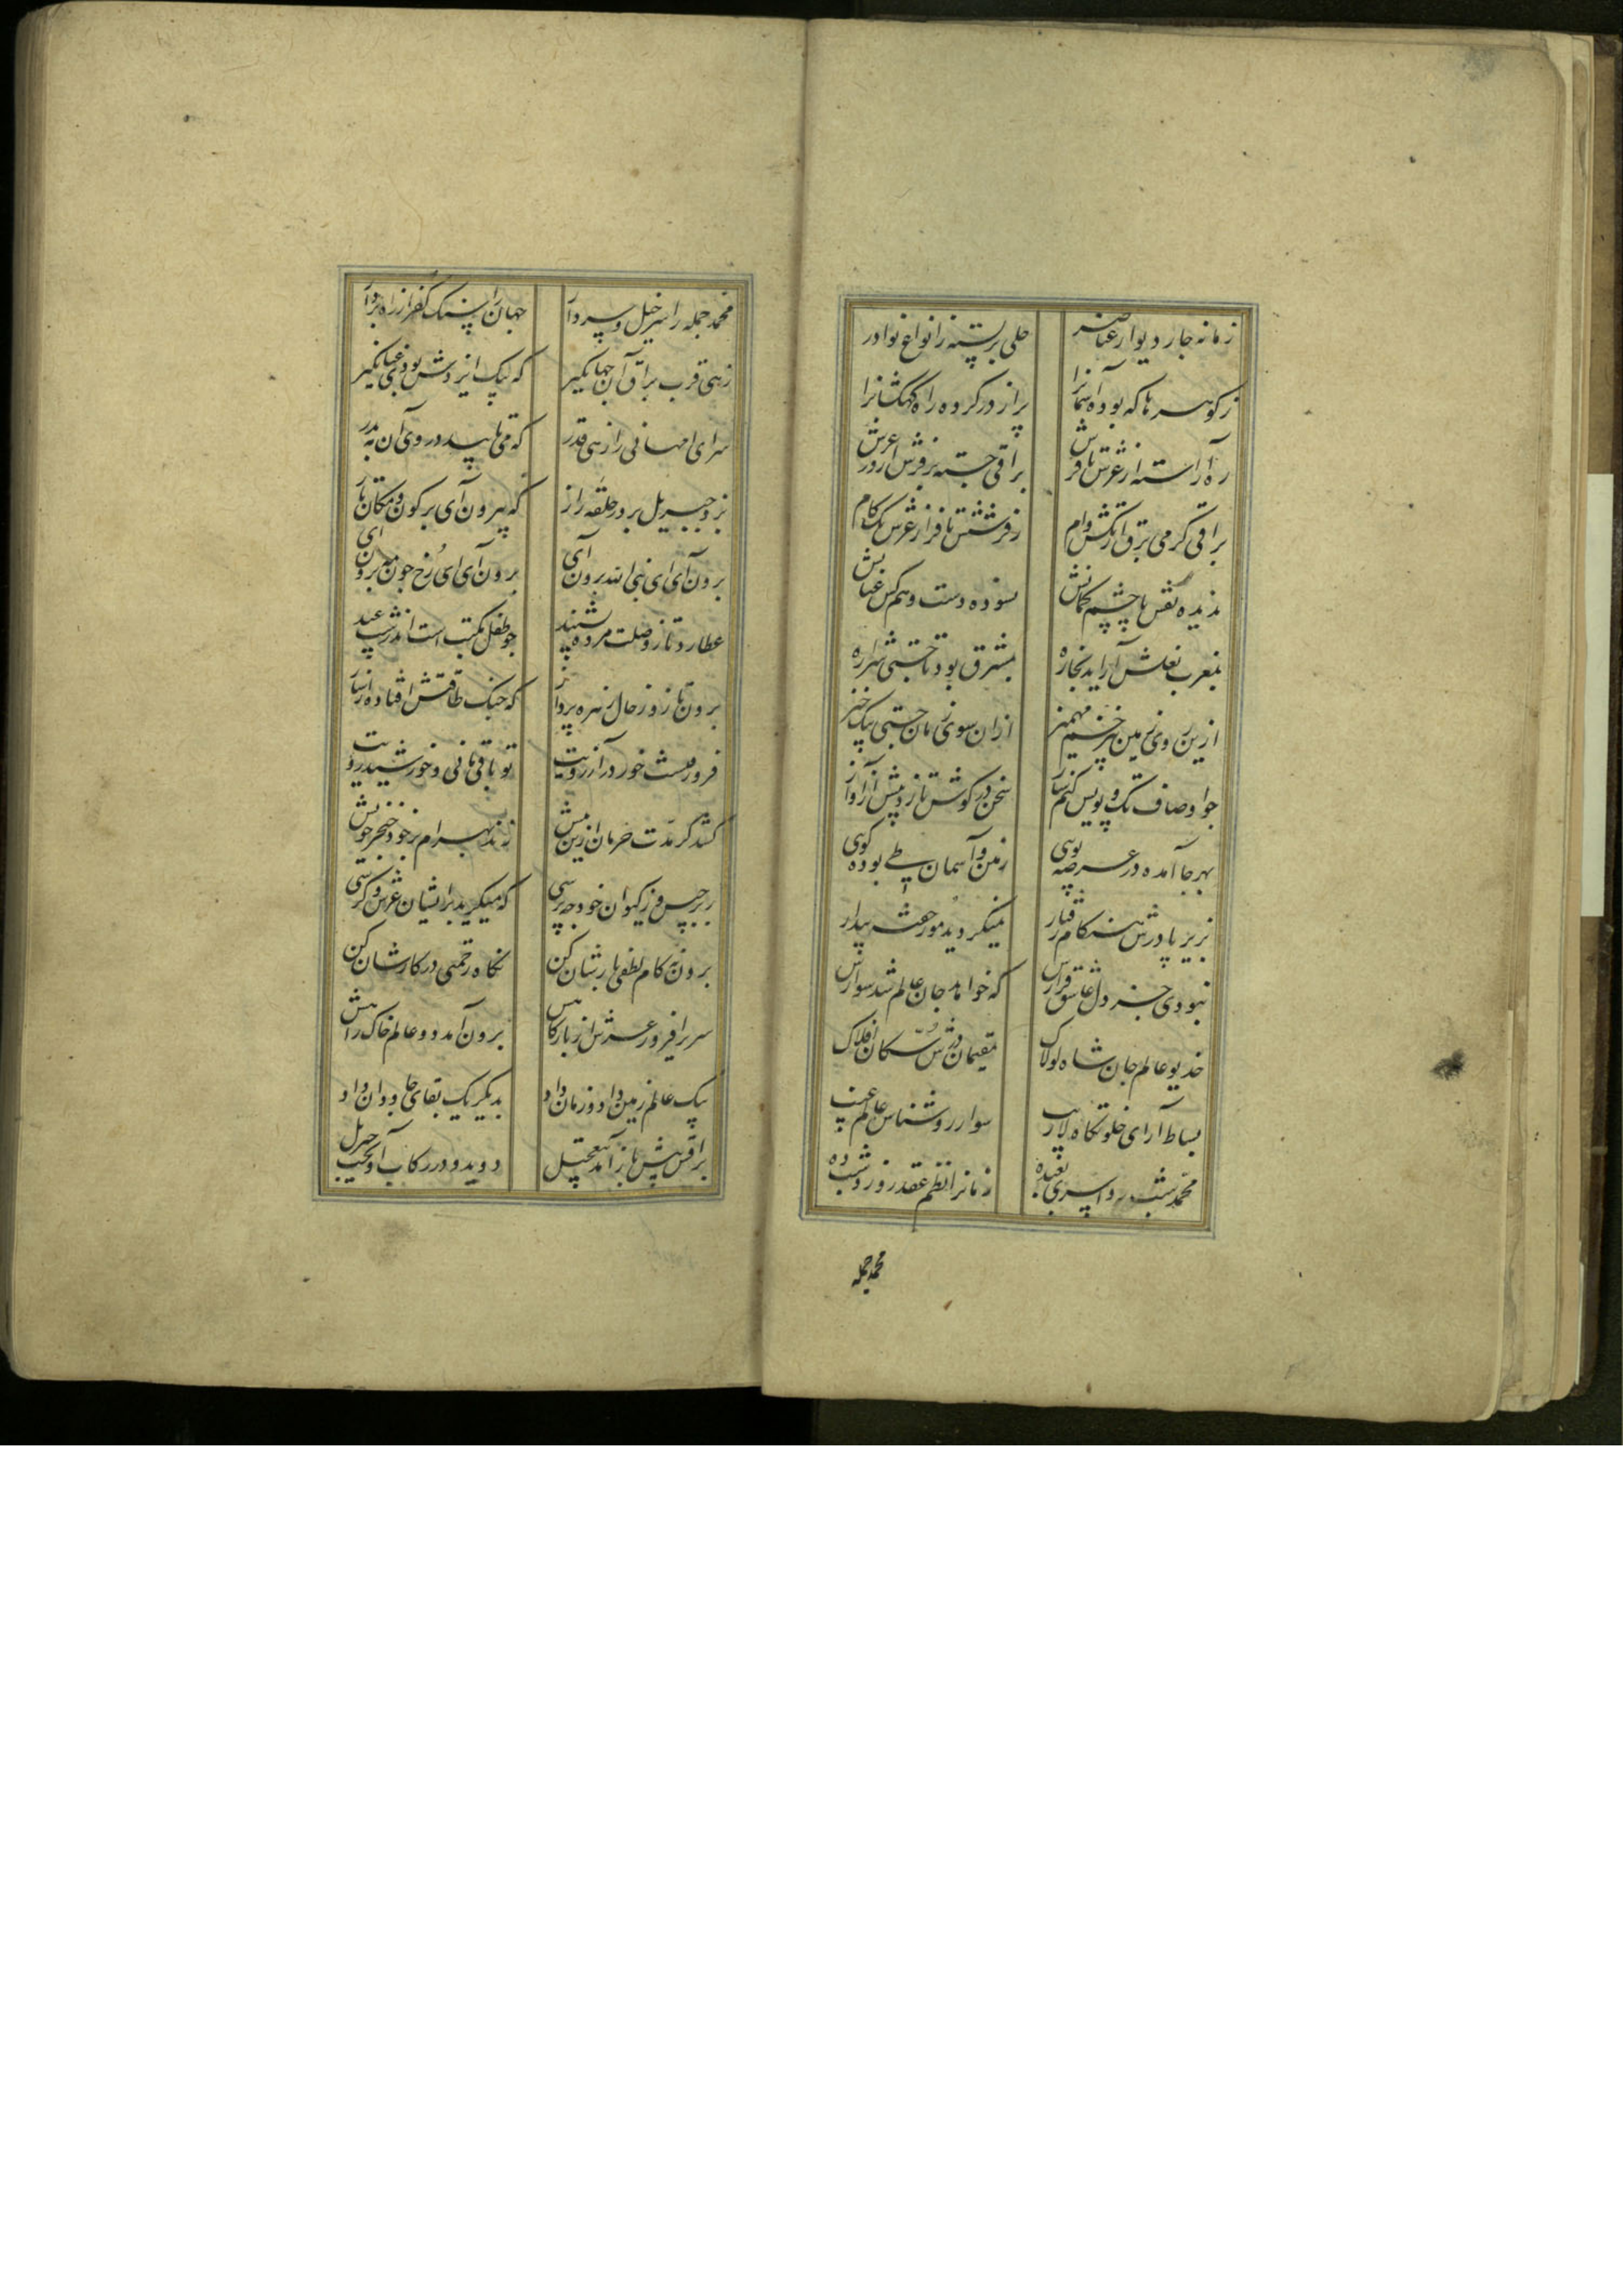 زمانه چار دیوار عناصر حلی بربسته ز انواع نوادر
ز کوهرها که بوده آسمانرا پر از در کرده راه کهکشانرا
ره آراسته از عرش تا فرش براقی جسته بر فرش از در عرش
براقی کرمی برق از تکش وام ز فرشش تا فراز عرش یک کام
ندیده نقش پا چشم کمانش نسوده دست وهم کس عنانش
بمغرب نعلش ار آید بخاره بمشرق بود تا جستی شراره
ازین روی زمین بی زخم مهمیز از آن سوی زمان جستی بیک خیز
چو اوصاف تک و پویش کنم ساز سخن در کوش تازد پیش از آواز
بهر جا آمده در عرصه پوی زمین و آسمان طی بوده کوی
بزیر پا درش هنکام رفتار نمیکردید مور خفته بیدار
نبودی جز دل عاشق قرارش که خواهد جان عالم شد سوارش
خدیو عالم جان شاه لولاک مقیمان درش سکان افلاک
بساط آرای خلوتکاه لاریب سوار روشناس عالم غیب
محمد شب رو اسری بعبده زمانرا نظم عقد روز و شب ده
محمد جمله
محمد جمله را سرخیل و سردار جهانرا سنک کفر از راه بردار
زهی قرب براق آن جهانکیر که پیک ایزدش بودی عنانکیر
سرای امهانی را زهی قدر که می تابید در وی آن مه بدر
بزد جبریل بر در حلقه راز که بیرون آی بر کون و مکان تاز
برون آی ای نبی الله برون آی برون آی ای رخ چون مه برون آی
عطارد تا ز وصلت مژده بشنید چو طفل مکتب است اندر شب عید
برون تاز و ز حال زهره پرداز که چنک طاقتش افتاده از ساز
فرو مانده است خور در آرزویت تو باقی مانی و خورشید رویت
کشد کر مدت حرمان ازین بیش زند بهرام بر خود خنجر خویش
ز برجیس و ز کیوان خود چه پرسی که میکرید برایشان عرش و کرسی
برون نه کام لطفی یارشان کن نکاه رحمتی در کارشان کن
سریر افروز عرش از بارکاهش برون آمد دو عالم خاک راهش
بیک عالم زمین داد و زمان داد بدیکر یک بقای جاودان داد
براقش پیش باز آمد بتعجیل دوید و در رکاب آویخت جبریل